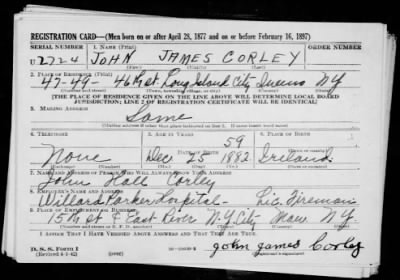 REGISTRATION CARD—(Men born on or after April 28, 1877 and on or before February 16, 1897)
SERIAL NUMBER 1. NAME (Print) ORDER NUMBER
U2724 JOHN JAMES CORLEY
(First) (Middle) (Last)
2. PLACE OF RESIDENCE (Print)
47-49- 46th St Long Island City Queens N.Y.
(Number and street) (Town, township, village, or city) (County) (State)
[THE PLACE OF RESIDENCE GIVEN ON THE LINE ABOVE WILL DETERMINE LOCAL BOARD
JURISDICTION; LINE 2 OF REGISTRATION CERTIFICATE WILL BE IDENTICAL]
3. MAILING ADDRESS
Same
(Mailing address if other than place indicated on line 2. If same insert word same)
4. TELEPHONE 5. AGE IN YEARS 6. PLACE OF BIRTH
59
DATE OF BIRTH
None Dec 25 1882 Ireland
(Exchange) (Number) (Mo.) (Day) (Yr.) (State or country)
7. NAME AND ADDRESS OF PERSON WHO WILL ALWAYS KNOW YOUR ADDRESS
John Corley
8. EMPLOYER'S NAME AND ADDRESS
Willard Parker Hospital - Lic. Fireman
9. PLACE OF EMPLOYMENT OR BUSINESS
15th St & East River N.Y. City N.Y.
(Number and street or R. F. D. number) (Town) (County) (State)
I AFFIRM THAT I HAVE VERIFIED ABOVE ANSWERS AND THAT THEY ARE TRUE.
D. S. S. Form 1
(Revised 4-1-42) (over)
John James Corley
(Registrant's signature)